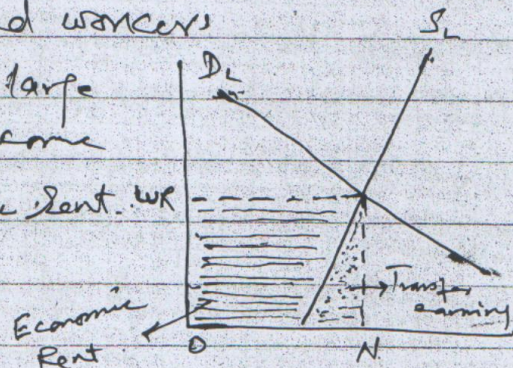 d workers
large
Rent.
DL
SL
WR
Transfer
earning
Economic
Rent
O
N